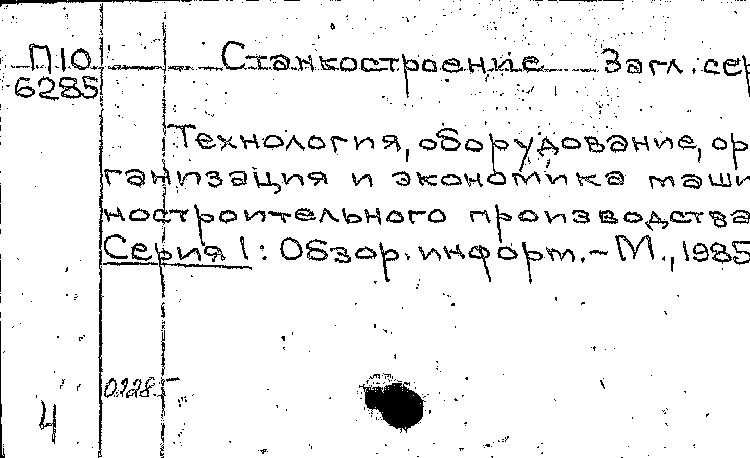 П10 Станкостроение Загл. сер
6285
Технология, оборудование, ор
ганизация и экономика маши
ностроительного производства
Серия 1: Обзор. информ. – М., 1985
02285
4